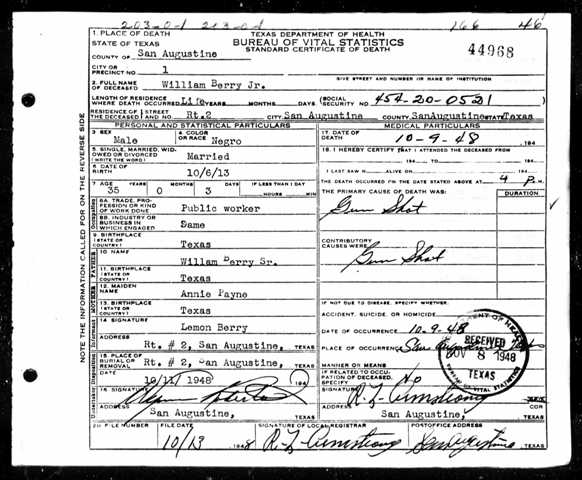 203-0-1 213-0-1 166 46
1 PLACE OF DEATH
STATE OF TEXAS
COUNTY OF San Augustine
TEXAS DEPARTMENT OF HEALTH
BUREAU OF VITAL STATISTICS
STANDARD CERTIFICATE OF DEATH
44968
CITY OR PRECINCT NO. 1
GIVE STREET AND NUMBER OR NAME OF INSTITUTION
2. FULL NAME OF DECEASED William Berry Jr.
LENGTH OF RESIDENCE WHERE DEATH OCCURRED Life YEARS MONTHS DAYS SOCIAL SECURITY NO. 454-20-0521
RESIDENCE OF THE DECEASED STREET AND NO. Rt.2 CITY San Augustine COUNTY SanAugustine STATE Texas
PERSONAL AND STATISTICAL PARTICULARS
3 SEX Male
4. COLOR OR RACE Negro
5. SINGLE, MARRIED, WIDOWED OR DIVORCED (WRITE THE WORD) Married
6. DATE OF BIRTH 10/6/13
7. AGE YEARS MONTHS DAYS IF LESS THAN 1 DAY
35 0 3 HOURS MIN
8A. TRADE, PROFESSION OR KIND OF WORK DONE Public worker
8B. INDUSTRY OR BUSINESS IN WHICH ENGAGED Same
9 BIRTHPLACE (STATE OR COUNTRY) Texas
10. NAME Willam Berry Sr.
11. BIRTHPLACE (STATE OR COUNTRY) Texas
12. MAIDEN NAME Annie Payne
13. BIRTHPLACE (STATE OR COUNTRY) Texas
14 SIGNATURE Lemon Berry
ADDRESS Rt. # 2, San Augustine, TEXAS
15. PLACE OF BURIAL OR REMOVAL Rt. # 2, San Augustine, TEXAS
DATE 10/11/1948
16. SIGNATURE
ADDRESS San Augustine, TEXAS
MEDICAL PARTICULARS
17. DATE OF DEATH 10-9-48 194
18. I HEREBY CERTIFY THAT I ATTENDED THE DECEASED FROM
194 TO 194
I LAST SAW H ALIVE ON 194
THE DEATH OCCURRED ON THE DATE STATED ABOVE AT 4 P. M.
THE PRIMARY CAUSE OF DEATH WAS: DURATION
Gun Shot
CONTRIBUTORY CAUSES WERE:
Gun Shot
IF NOT DUE TO DISEASE, SPECIFY WHETHER:
ACCIDENT, SUICIDE, OR HOMICIDE
DATE OF OCCURRENCE 10-9-48
PLACE OF OCCURRENCE San Augustine
MANNER OR MEANS
IF RELATED TO OCCUPATION OF DECEASED, SPECIFY No
SIGNATURE R. L. Armstrong
ADDRESS San Augustine, TEXAS
RECEIVED
NOV 8 1948
TEXAS
BUREAU OF VITAL STATISTICS
FILE NUMBER FILE DATE SIGNATURE OF LOCAL REGISTRAR POSTOFFICE ADDRESS
10/13 1948 R. L. Armstrong San Augustine TEXAS
NOTE THE INFORMATION CALLED FOR ON THE REVERSE SIDE
Occupation
FATHER
MOTHER
Informant